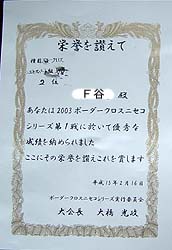 栄誉を讃えて
2位
F谷 殿
あなたは2003ボーダークロスニセコ
シリーズ第1戦に於いて優秀な
成績を納められました
ここにその栄誉を讃えこれを賞します
平成15年2月16日
ボーダークロスニセコシリーズ実行委員会
大会長 大橋